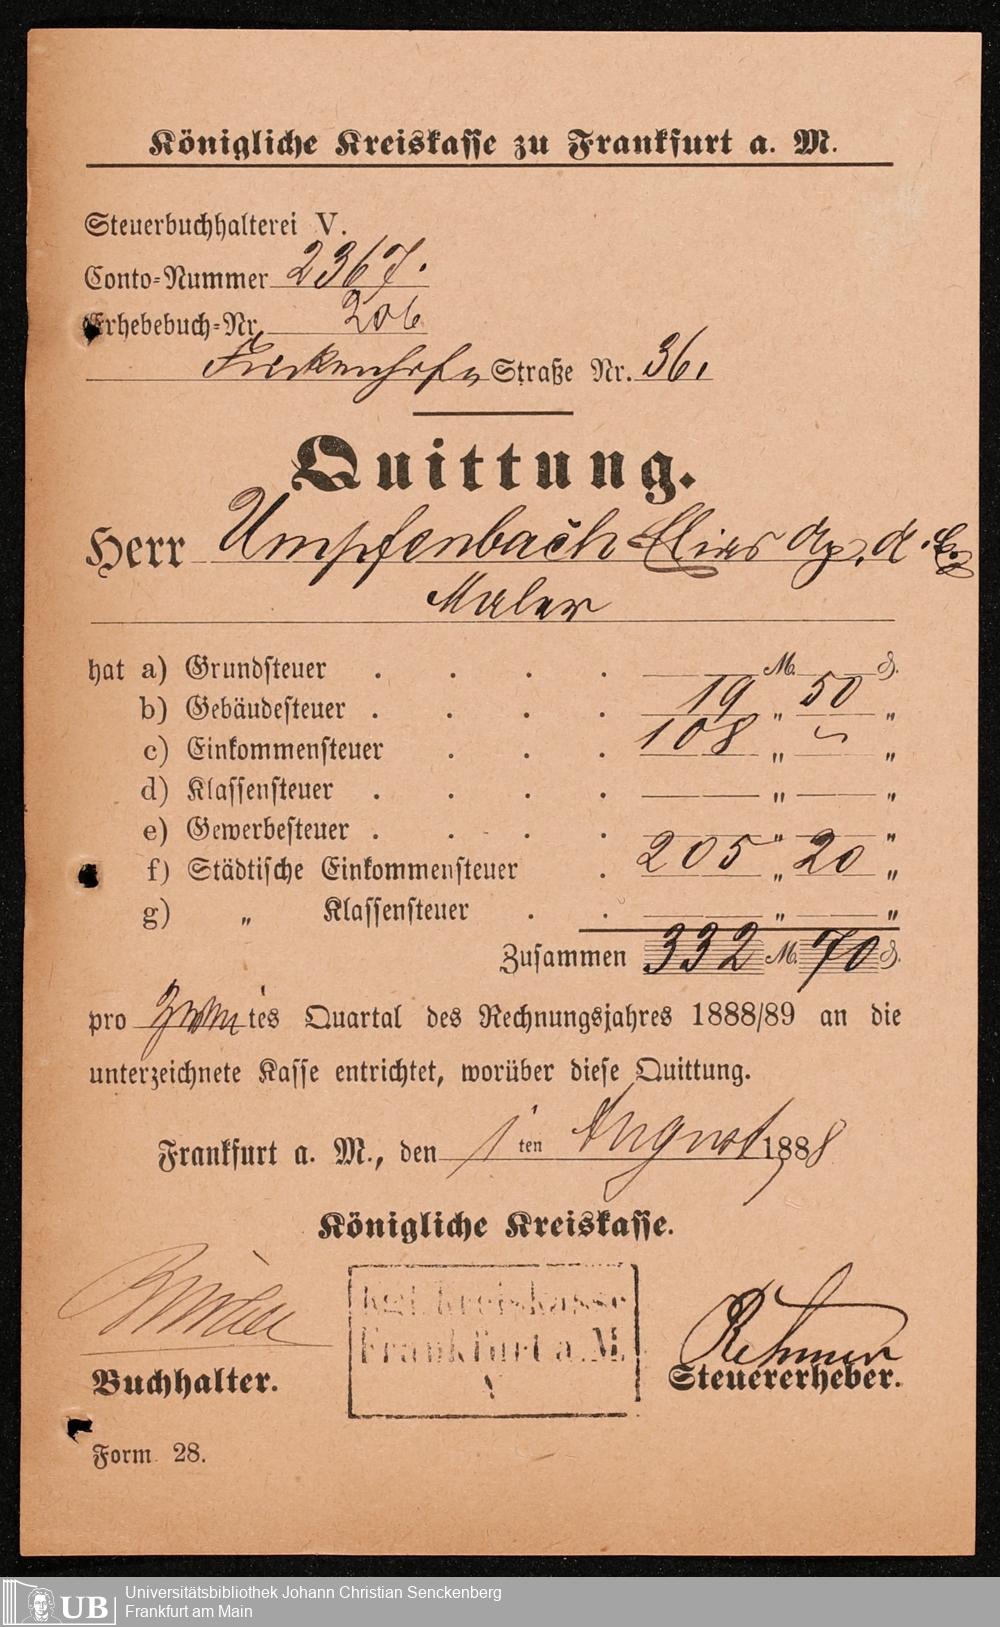 Königliche Kreiskasse zu Frankfurt a. M.
Steuerbuchhalterei V.
Conto-Nummer 2367.
Erhebebuch-Nr. 206
Straße Nr. 36.
Quittung.
Herr Umpfenbach
Maler
hat a) Grundsteuer . . . . M. ₰.
b) Gebäudesteuer . . . . 19 „ 50 „
c) Einkommensteuer . . . 108 „ — „
d) Klassensteuer . . . . — „ — „
e) Gewerbesteuer . . . . „ „
f) Städtische Einkommensteuer . 205 „ 20 „
g) „ Klassensteuer . . „ „
Zusammen 332 M. 70 ₰.
pro tes Quartal des Rechnungsjahres 1888/89 an die
unterzeichnete Kasse entrichtet, worüber diese Quittung.
Frankfurt a. M., den 1 ten August 1888
Königliche Kreiskasse.
Kgl. Kreiskasse
Frankfurt a. M.
V
Buchhalter.
Steuererheber.
Form 28.
UB
Universitätsbibliothek Johann Christian Senckenberg
Frankfurt am Main